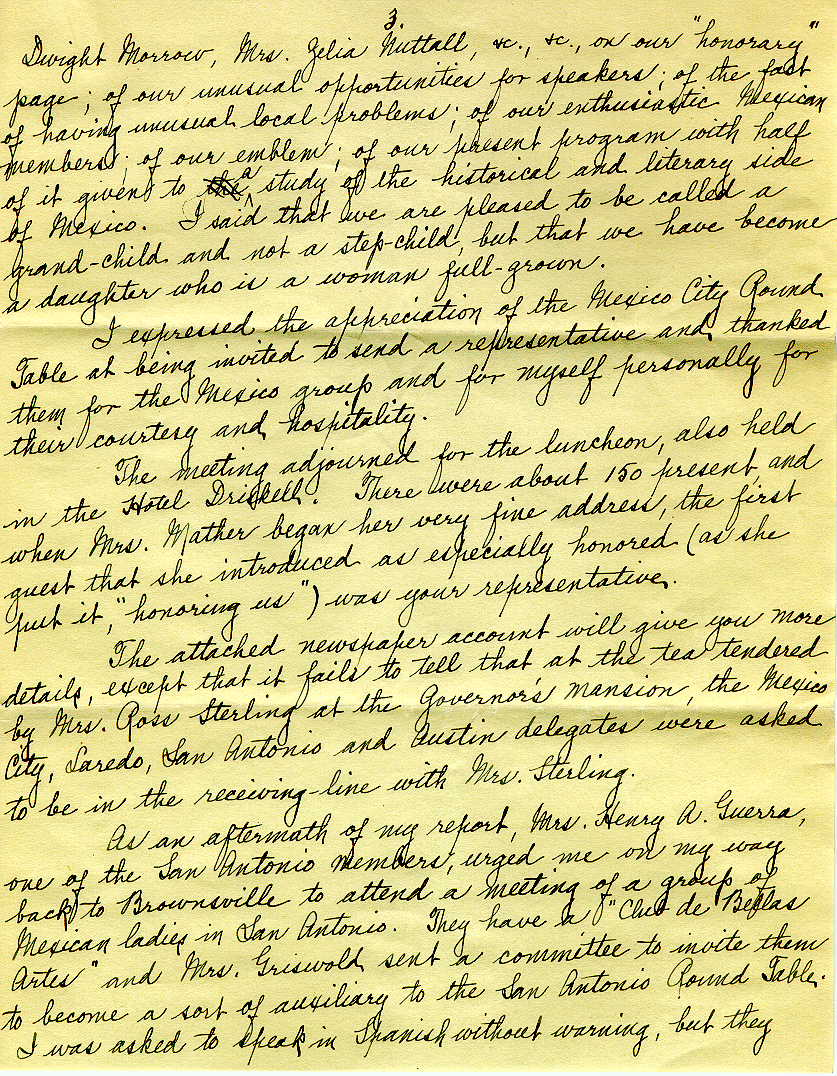 3.
Dwight Morrow, Mrs. Zelia Nuttall, &c., &c., on our "honorary"
page; of our unusual opportunities for speakers; of the fact
of having unusual local problems; of our enthusiastic Mexican
members; of our emblem; of our present program with half
of it given to the a study of the historical and literary side
of Mexico. I said that we are pleased to be called a
grand-child and not a step-child, but that we have become
a daughter who is a woman full-grown.
I expressed the appreciation of the Mexico City Round
Table at being invited to send a representative and thanked
them for the Mexico group and for myself personally for
their courtesy and hospitality.
The meeting adjourned for the luncheon, also held
in the Hotel Driskell. There were about 150 present, and
when Mrs. Mather began her very fine address, the first
guest that she introduced as especially honored (as she
put it, "honoring us") was your representative.
The attached newspaper account will give you more
details, except that it fails to tell that at the tea tendered
by Mrs. Ross Sterling at the Governor's mansion, the Mexico
City, Laredo, San Antonio and Austin delegates were asked
to be in the receiving-line with Mrs. Sterling.
As an aftermath of my report, Mrs. Henry A. Guerra,
one of the San Antonio members, urged me on my way
back to Brownsville to attend a meeting of a group of
Mexican ladies in San Antonio. They have a "Club de Bellas
Artes" and Mrs. Griswold sent a committee to invite them
to become a sort of auxiliary to the San Antonio Round Table.
I was asked to speak in Spanish without warning, but they